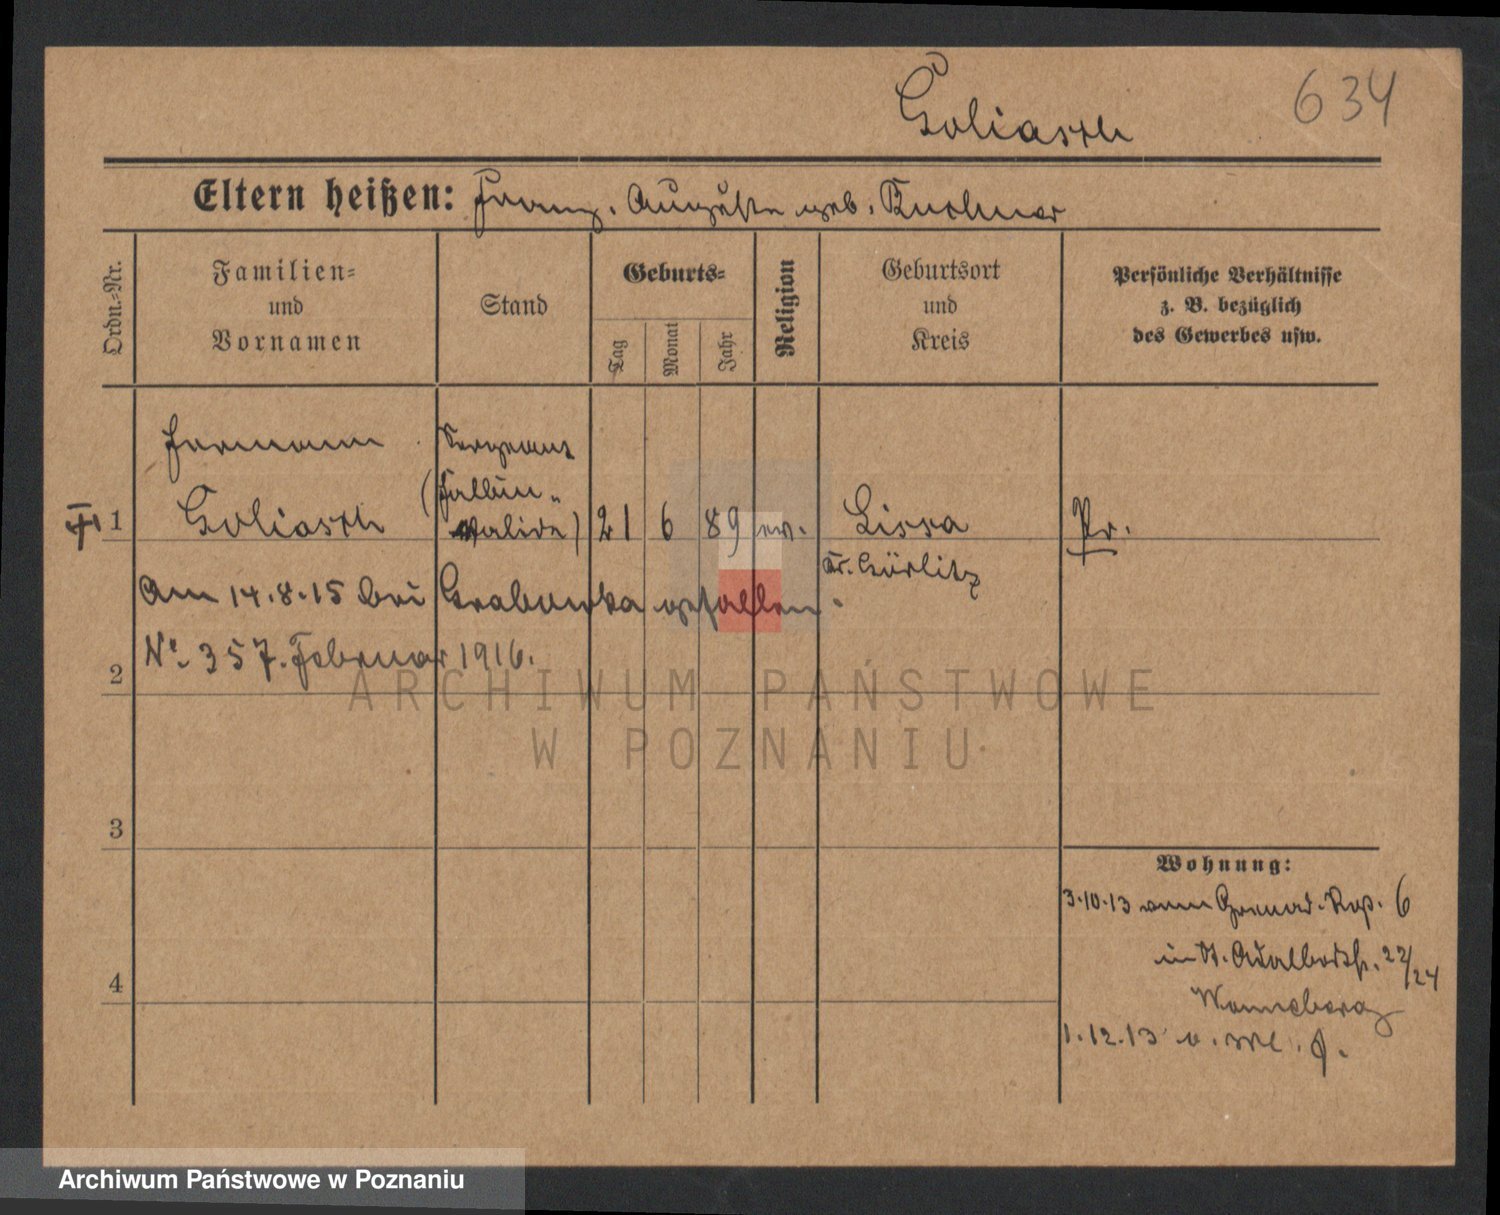 Goliasch
634
Eltern heißen: Franz. Auguste geb. Buchner
Ordn.-Nr.
Familien-
und
Vornamen
Stand
Geburts-
Tag
Monat
Jahr
Religion
Geburtsort
und
Kreis
Persönliche Verhältnisse
z. B. bezüglich
des Gewerbes usw.
Hermann
Sergeant
(Halbin-
1
Goliasch
valide)
21
6
89
ev.
Lissa
Pr.
Kr. Görlitz
Am 14.8.15 bei Grabowka gefallen.
No. 357. Februar 1916.
2
3
4
Wohnung:
3.10.13 vom Grenad. Rgt. 6
in St. Adalbertstr. 22/24
Wanneberg
1.12.13
ARCHIWUM PAŃSTWOWE
W POZNANIU
Archiwum Państwowe w Poznaniu